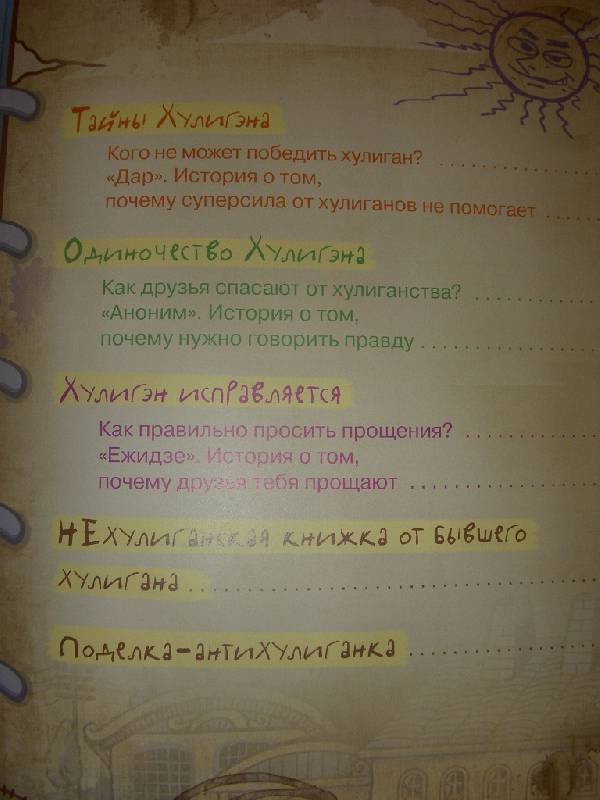 Тайны Хулигэна
Кого не может победить хулиган? . . . . . . . . . . . . .
«Дар». История о том,
почему суперсила от хулиганов не помогает . . . . .
Одиночество Хулигэна
Как друзья спасают от хулиганства? . . . . . . . . . . .
«Аноним». История о том,
почему нужно говорить правду . . . . . . . . . . . . . . . .
Хулигэн исправляется
Как правильно просить прощения? . . . . . . . . . . . .
«Ежидзе». История о том,
почему друзья тебя прощают . . . . . . . . . . . . . . . . .
НЕхулиганская книжка от бывшего
хулигана . . . . . . . . . . . . . . . . . . . . . . . . . . . . . . . . . .
Поделка-антихулиганка . . . . . . . . . . . . . . . . .